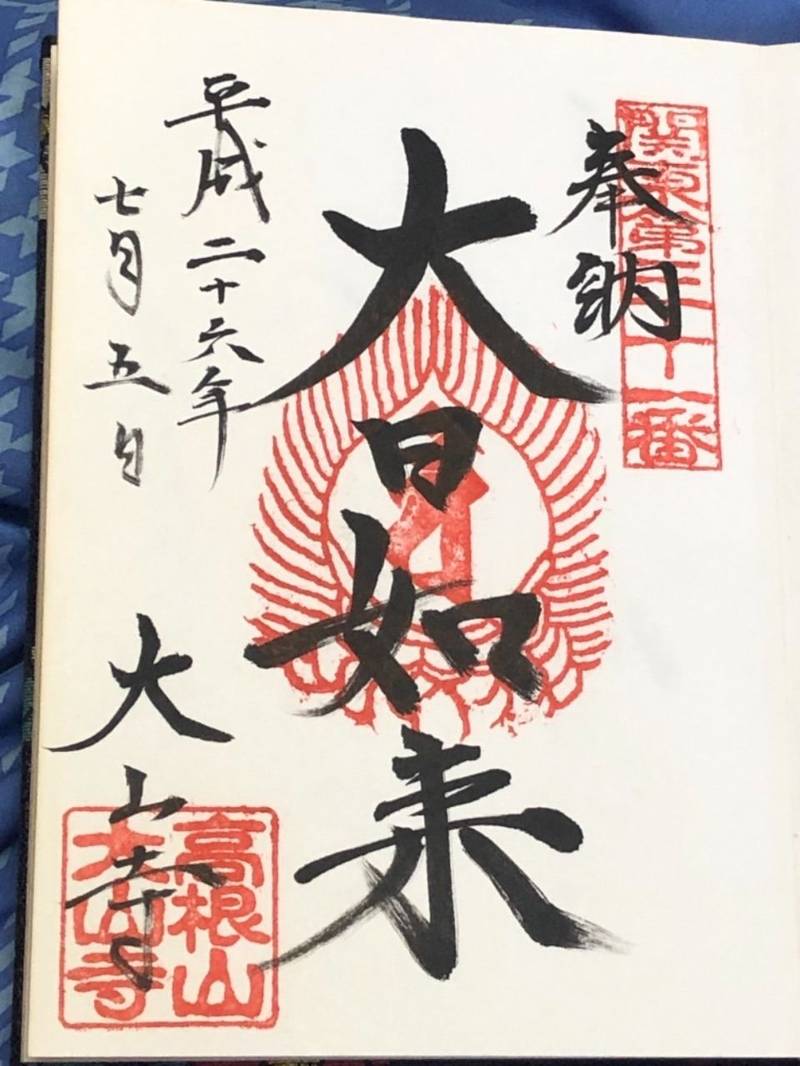 關東第三十一番
奉納
大日如来
平成二十六年
七月五日
大山寺
高根山
大山寺